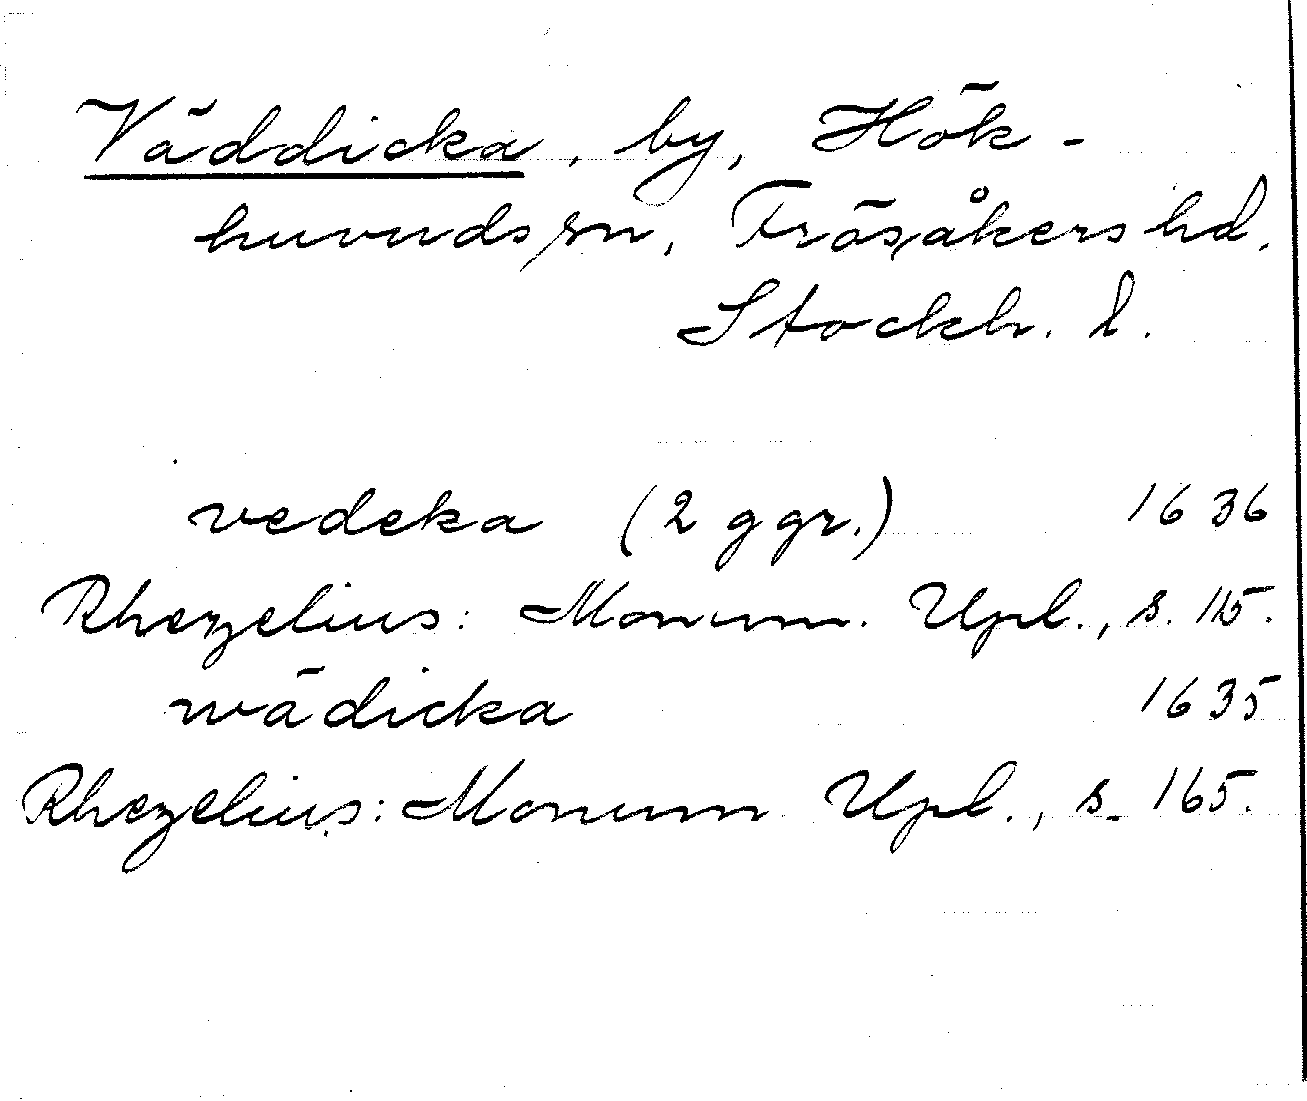 Väddicka, by, Hök-
huvuds sn, Frösåkers hd,
Stockh. l.
vedeka (2 ggr.) 1636
Rhezelius: Monum. Upl., s. 115.
wädicka 1635
Rhezelius: Monum Upl., s. 165.